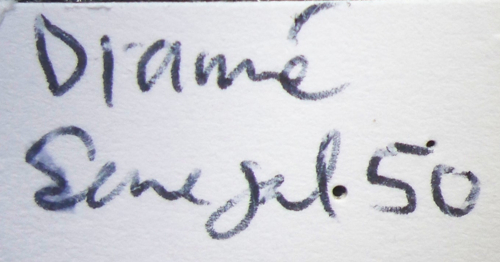 Diamé
Senegal.50